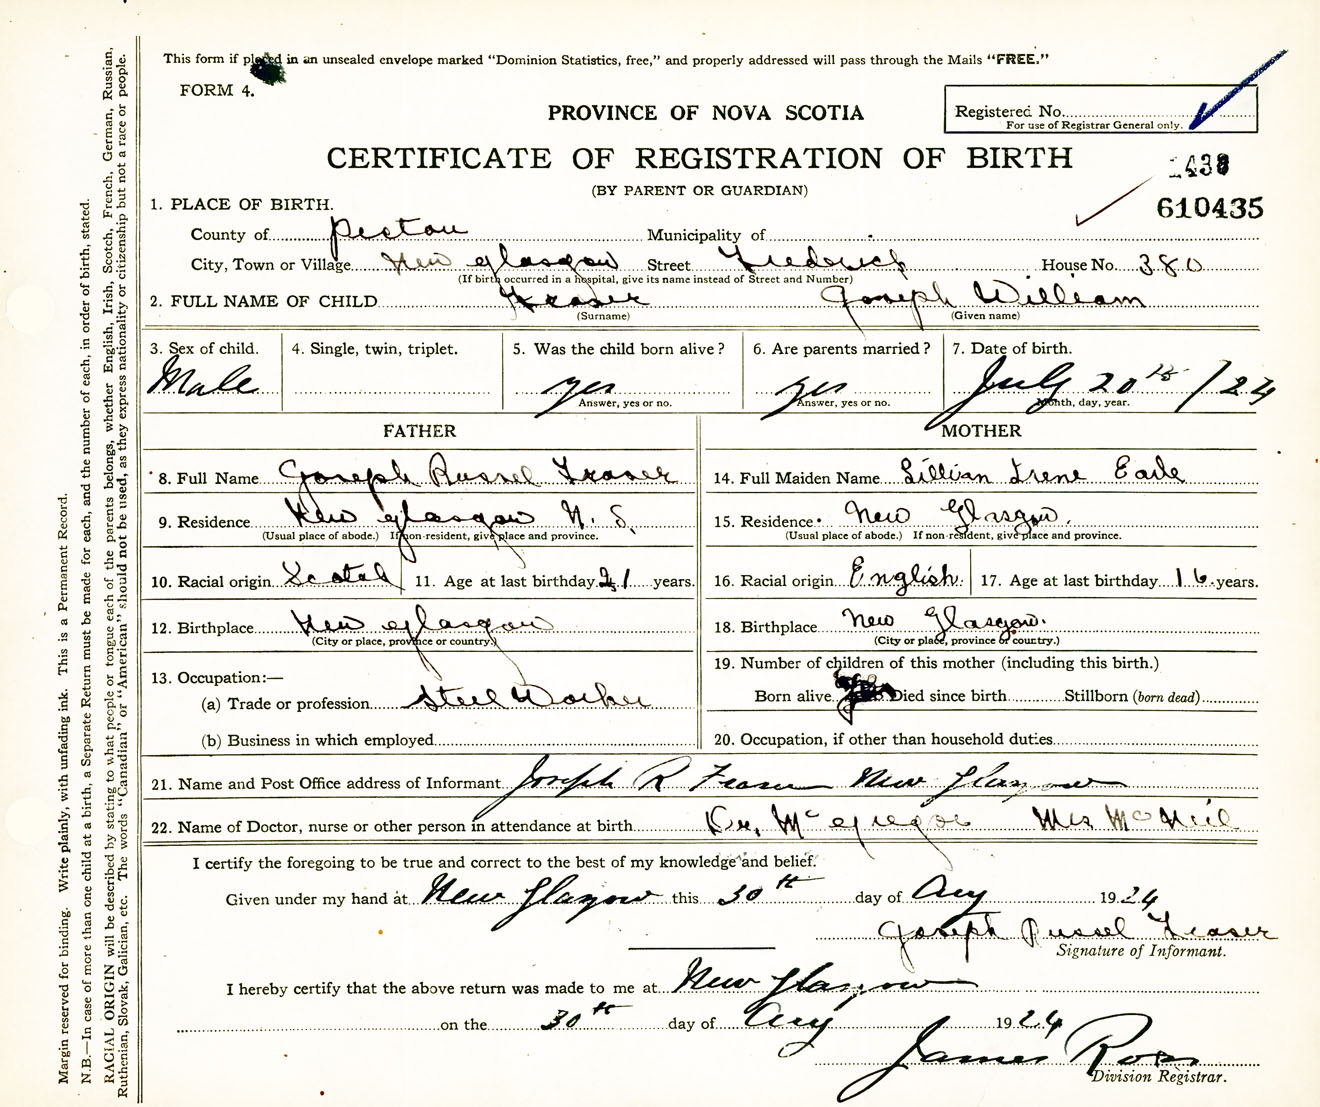 This form if placed in an unsealed envelope marked "Dominion Statistics, free," and properly addressed will pass through the Mails "FREE."
FORM 4.
PROVINCE OF NOVA SCOTIA
Registered No.
For use of Registrar General only.
CERTIFICATE OF REGISTRATION OF BIRTH
1438
(BY PARENT OR GUARDIAN)
610435
1. PLACE OF BIRTH.
County of Pictou Municipality of
City, Town or Village New Glasgow Street Frederick House No. 380
(If birth occurred in a hospital, give its name instead of Street and Number)
2. FULL NAME OF CHILD Fraser Joseph William
(Surname) (Given name)
3. Sex of child. 4. Single, twin, triplet. 5. Was the child born alive? 6. Are parents married? 7. Date of birth.
Male yes yes July 20th /24
Answer, yes or no. Answer, yes or no. Month, day, year.
FATHER MOTHER
8. Full Name Joseph Russel Fraser 14. Full Maiden Name Lillian Irene Earle
9. Residence New Glasgow N. S. 15. Residence New Glasgow.
(Usual place of abode.) If non-resident, give place and province. (Usual place of abode.) If non-resident, give place and province.
10. Racial origin Scotch 11. Age at last birthday 21 years. 16. Racial origin English. 17. Age at last birthday 16 years.
12. Birthplace New Glasgow 18. Birthplace New Glasgow.
(City or place, province or country.) (City or place, province or country.)
13. Occupation:— 19. Number of children of this mother (including this birth.)
(a) Trade or profession Steel Worker Born alive Died since birth Stillborn (born dead)
(b) Business in which employed 20. Occupation, if other than household duties
21. Name and Post Office address of Informant Joseph R Fraser New Glasgow
22. Name of Doctor, nurse or other person in attendance at birth Dr. McGregor Mrs McNeil
I certify the foregoing to be true and correct to the best of my knowledge and belief.
Given under my hand at New Glasgow this 30th day of Aug 1924
Joseph Russel Fraser
Signature of Informant.
I hereby certify that the above return was made to me at New Glasgow
on the 30th day of Aug 1924
James Ross
Division Registrar.
Margin reserved for binding. Write plainly, with unfading ink. This is a Permanent Record.
N.B.—In case of more than one child at a birth, a Separate Return must be made for each, and the number of each, in order of birth, stated.
RACIAL ORIGIN will be described by stating to what people or tongue each of the parents belongs, whether English, Irish, Scotch, French, German, Russian,
Ruthenian, Slovak, Galician, etc. The words "Canadian" or "American" should not be used, as they express nationality or citizenship but not a race or people.